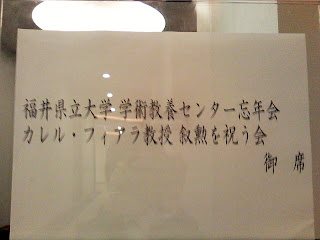 福井県立大学 学術教養センター忘年会
カレル・フィアラ教授 叙勲を祝う会
御 席